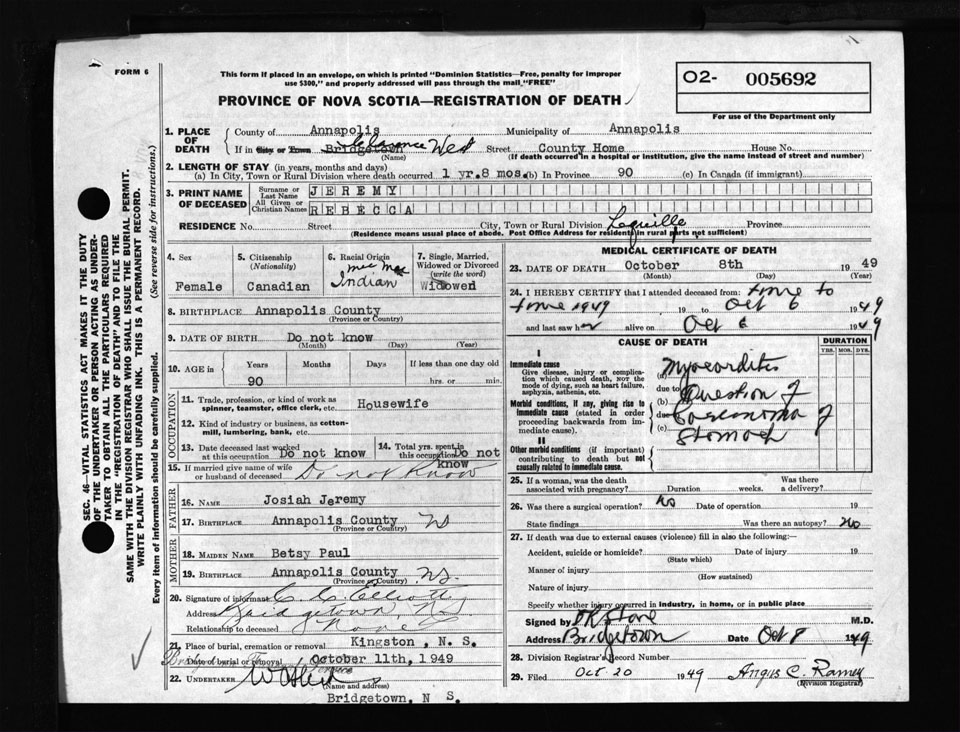 FORM 6
This form if placed in an envelope, on which is printed "Dominion Statistics—Free, penalty for improper
use $300," and properly addressed will pass through the mail "FREE"
PROVINCE OF NOVA SCOTIA—REGISTRATION OF DEATH
O2- 005692
For use of the Department only
SEC. 46—VITAL STATISTICS ACT MAKES IT THE DUTY
OF THE UNDERTAKER OR PERSON ACTING AS UNDER-
TAKER TO OBTAIN ALL THE PARTICULARS REQUIRED
IN THE "REGISTRATION OF DEATH" AND TO FILE THE
SAME WITH THE DIVISION REGISTRAR WHO SHALL ISSUE THE BURIAL PERMIT.
WRITE PLAINLY WITH UNFADING INK. THIS IS A PERMANENT RECORD.
Every item of information should be carefully supplied. (See reverse side for instructions.)
1. PLACE OF DEATH County of Annapolis Municipality of Annapolis
If in City or Town Bridgetown Clarence West Street County Home House No.
(Name) (If death occurred in a hospital or institution, give the name instead of street and number)
2. LENGTH OF STAY (in years, months and days)
(a) In City, Town or Rural Division where death occurred 1 yr.8 mos. (b) In Province 90 (c) In Canada (if immigrant)
3. PRINT NAME OF DECEASED Surname or Last Name JEREMY
All Given or Christian Names REBECCA
RESIDENCE No. Street City, Town or Rural Division Lequille Province
(Residence means usual place of abode. Post Office Address for residents in rural parts not sufficient)
4. Sex Female
5. Citizenship (Nationality) Canadian
6. Racial Origin Mic Mac Indian
7. Single, Married, Widowed or Divorced (write the word) Widowed
8. BIRTHPLACE Annapolis County
(Province or Country)
9. DATE OF BIRTH Do not know
(Month) (Day) (Year)
10. AGE Years Months Days If less than one day old
90 hrs. or min.
OCCUPATION
11. Trade, profession, or kind of work as spinner, teamster, office clerk, etc. Housewife
12. Kind of industry or business, as cotton-mill, lumbering, bank, etc.
13. Date deceased last worked at this occupation Do not know
14. Total yrs. spent in this occupation Do not know
15. If married give name of wife or husband of deceased Do not know
FATHER
16. NAME Josiah Jeremy
17. BIRTHPLACE Annapolis County NS
(Province or Country)
MOTHER
18. MAIDEN NAME Betsy Paul
19. BIRTHPLACE Annapolis County N.S.
(Province or Country)
20. Signature of informant C. C. Elliott
Address Bridgetown, N.S
Relationship to deceased None
21. Place of burial, cremation or removal Kingston, N. S.
Date of burial or removal October 11th, 1949
22. UNDERTAKER
(Name and address)
Bridgetown, N S.
MEDICAL CERTIFICATE OF DEATH
23. DATE OF DEATH October 8th 1949
(Month) (Day) (Year)
24. I HEREBY CERTIFY that I attended deceased from: time to
time 1949 19 to Oct 6 1949
and last saw her alive on Oct 6 1949
CAUSE OF DEATH DURATION
YRS. MOS. DYS.
I
Immediate cause
Give disease, injury or complication which caused death, not the mode of dying, such as heart failure, asphyxia, asthenia, etc.
(a) Myocarditis
due to
Morbid conditions, if any, giving rise to immediate cause (stated in order proceeding backwards from immediate cause).
(b) Question of
due to Carcinoma of
(c) Stomach
II
Other morbid conditions (if important) contributing to death but not causally related to immediate cause.
25. If a woman, was the death associated with pregnancy? Duration weeks. Was there a delivery?
26. Was there a surgical operation? No Date of operation 19
State findings Was there an autopsy? No
27. If death was due to external causes (violence) fill in also the following:—
Accident, suicide or homicide? Date of injury 19
(State which)
Manner of injury
(How sustained)
Nature of injury
Specify whether injury occurred in industry, in home, or in public place
Signed by M.D.
Address Bridgetown Date Oct 8 1949
28. Division Registrar's Record Number
29. Filed Oct 20 1949 Angus C. Ramey
(Division Registrar)